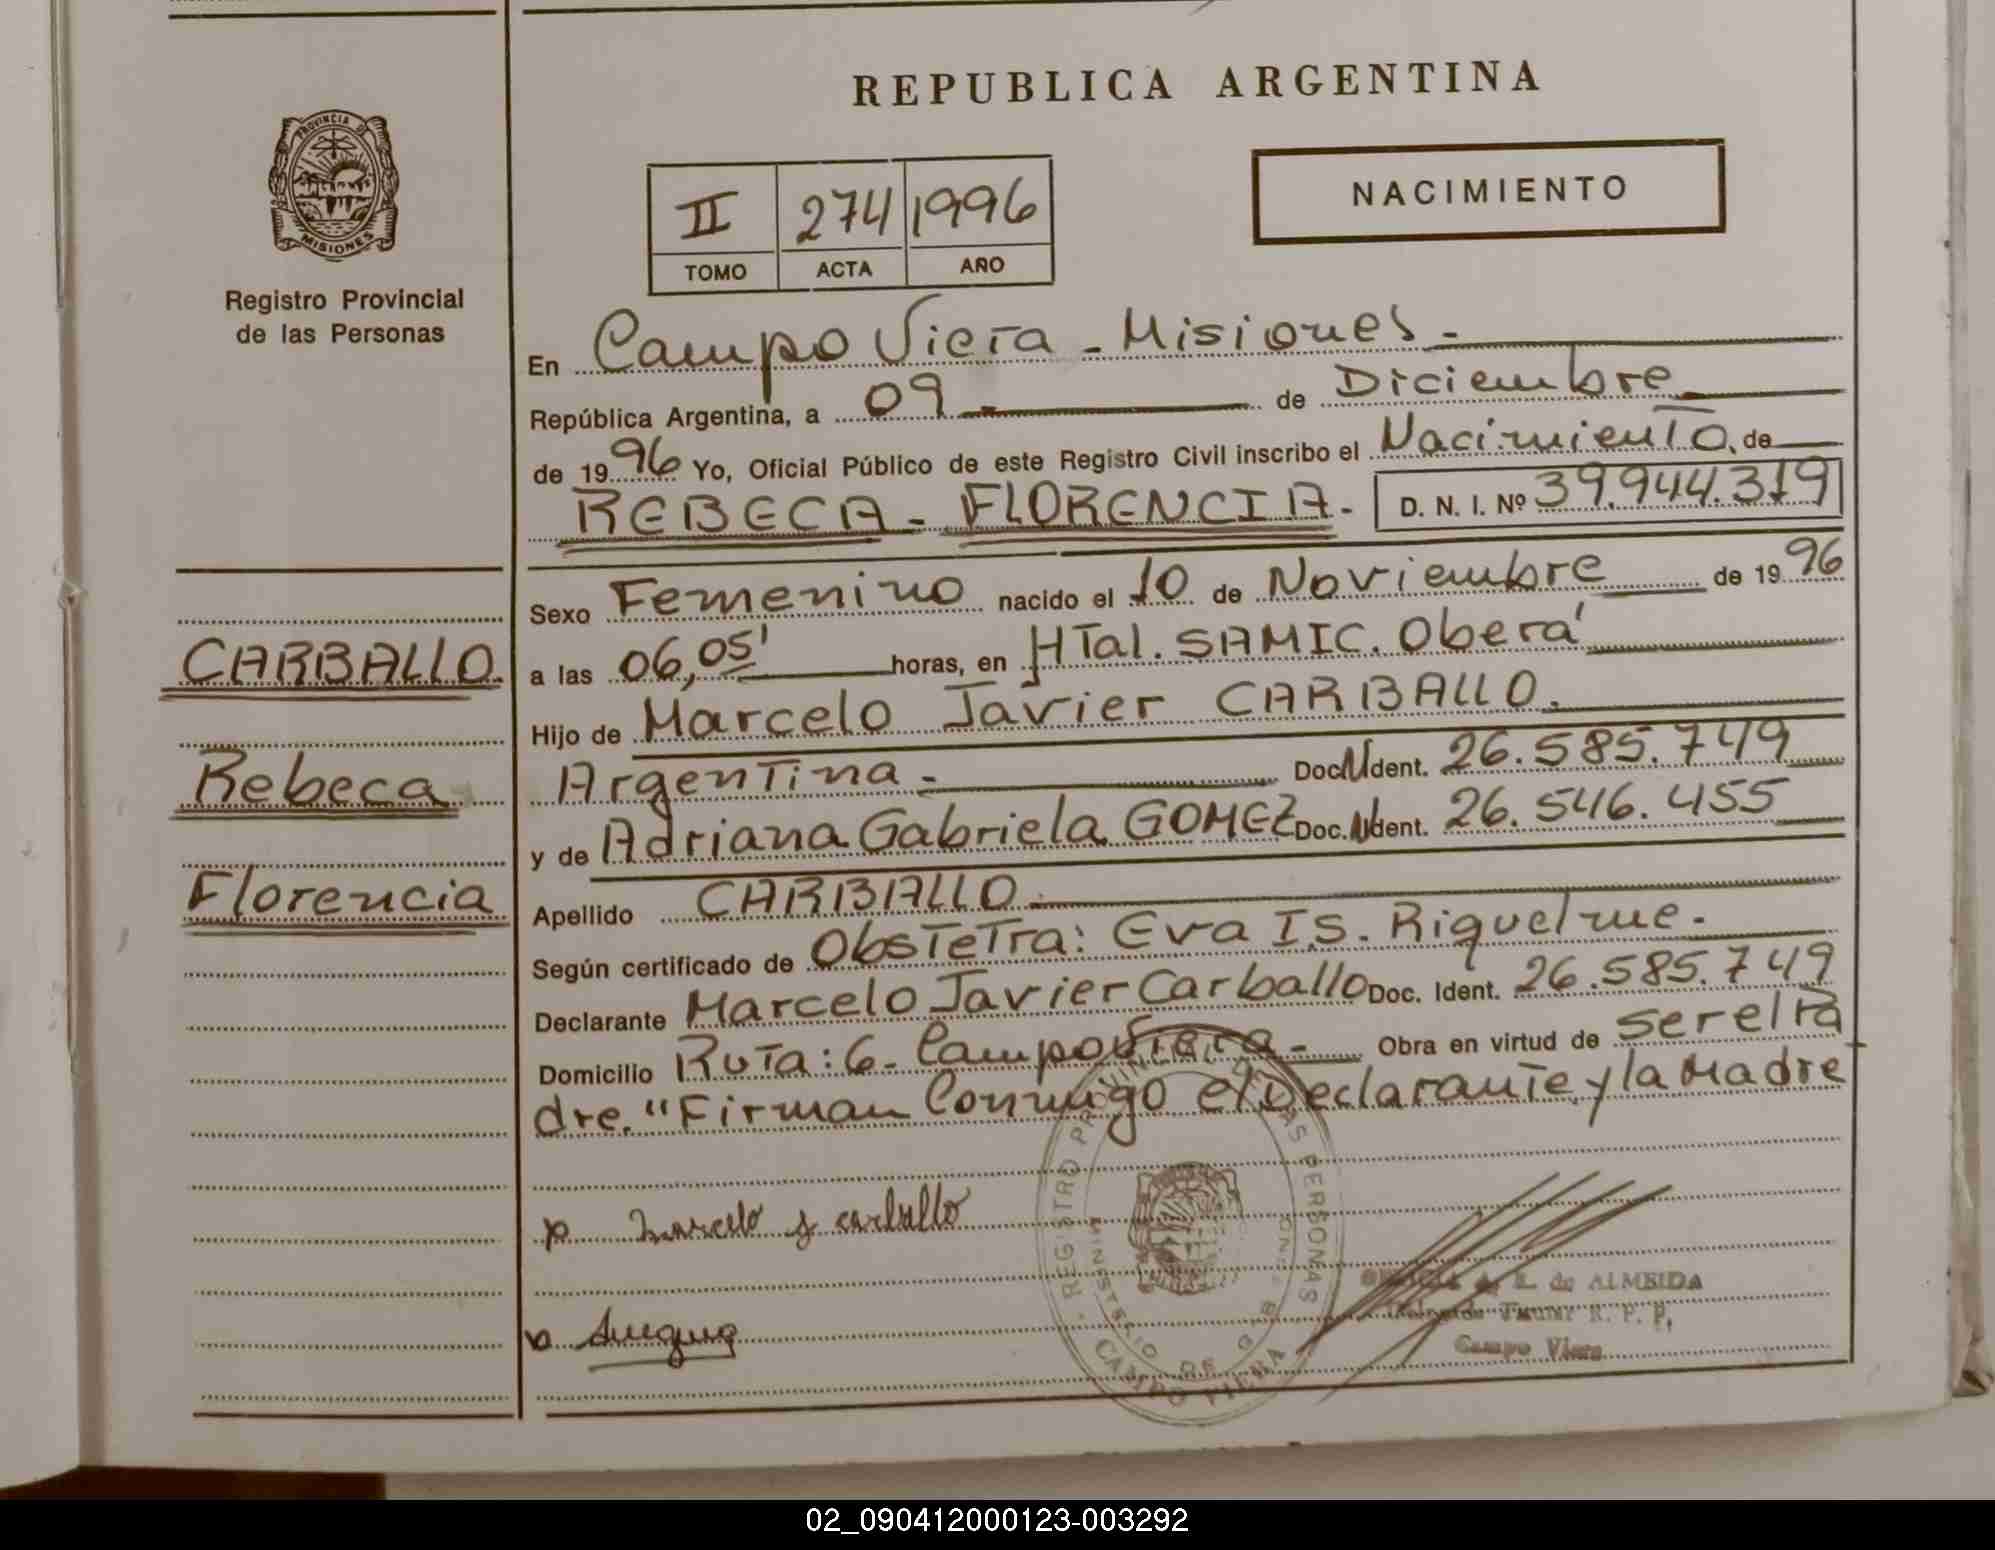 REPUBLICA ARGENTINA
PROVINCIA DE
MISIONES
Registro Provincial
de las Personas
NACIMIENTO
II 274 1996
TOMO ACTA AÑO
En Campo Viera - Misiones -
República Argentina, a 09 - de Diciembre
de 1996 Yo, Oficial Público de este Registro Civil inscribo el Nacimiento, de
REBECA - FLORENCIA - D. N. I. Nº 39.944.319
Sexo Femenino nacido el 10 de Noviembre de 1996
CARBALLO
a las 06,05' horas, en HTal. SAMIC. Oberá
Hijo de Marcelo Javier CARBALLO.
Rebeca
Argentina - Doc. Ident. 26.585.749
y de Adriana Gabriela GOMEZ Doc. Ident. 26.546.455
Florencia
Apellido CARBALLO -
Según certificado de Obstetra: Eva I.S. Riquelme.
Declarante Marcelo Javier Carballo Doc. Ident. 26.585.749
Domicilio Ruta: 6 - Campo Viera - Obra en virtud de ser el Pa
dre. "Firman Conmigo el Declarante y la Madre
Marcelo J carballo
REGISTRO PROVINCIAL DE LAS PERSONAS
MINISTERIO DE GOB
CAMPO VIERA
de ALMEIDA
R. P. P.
Campo Viera
02_090412000123-003292